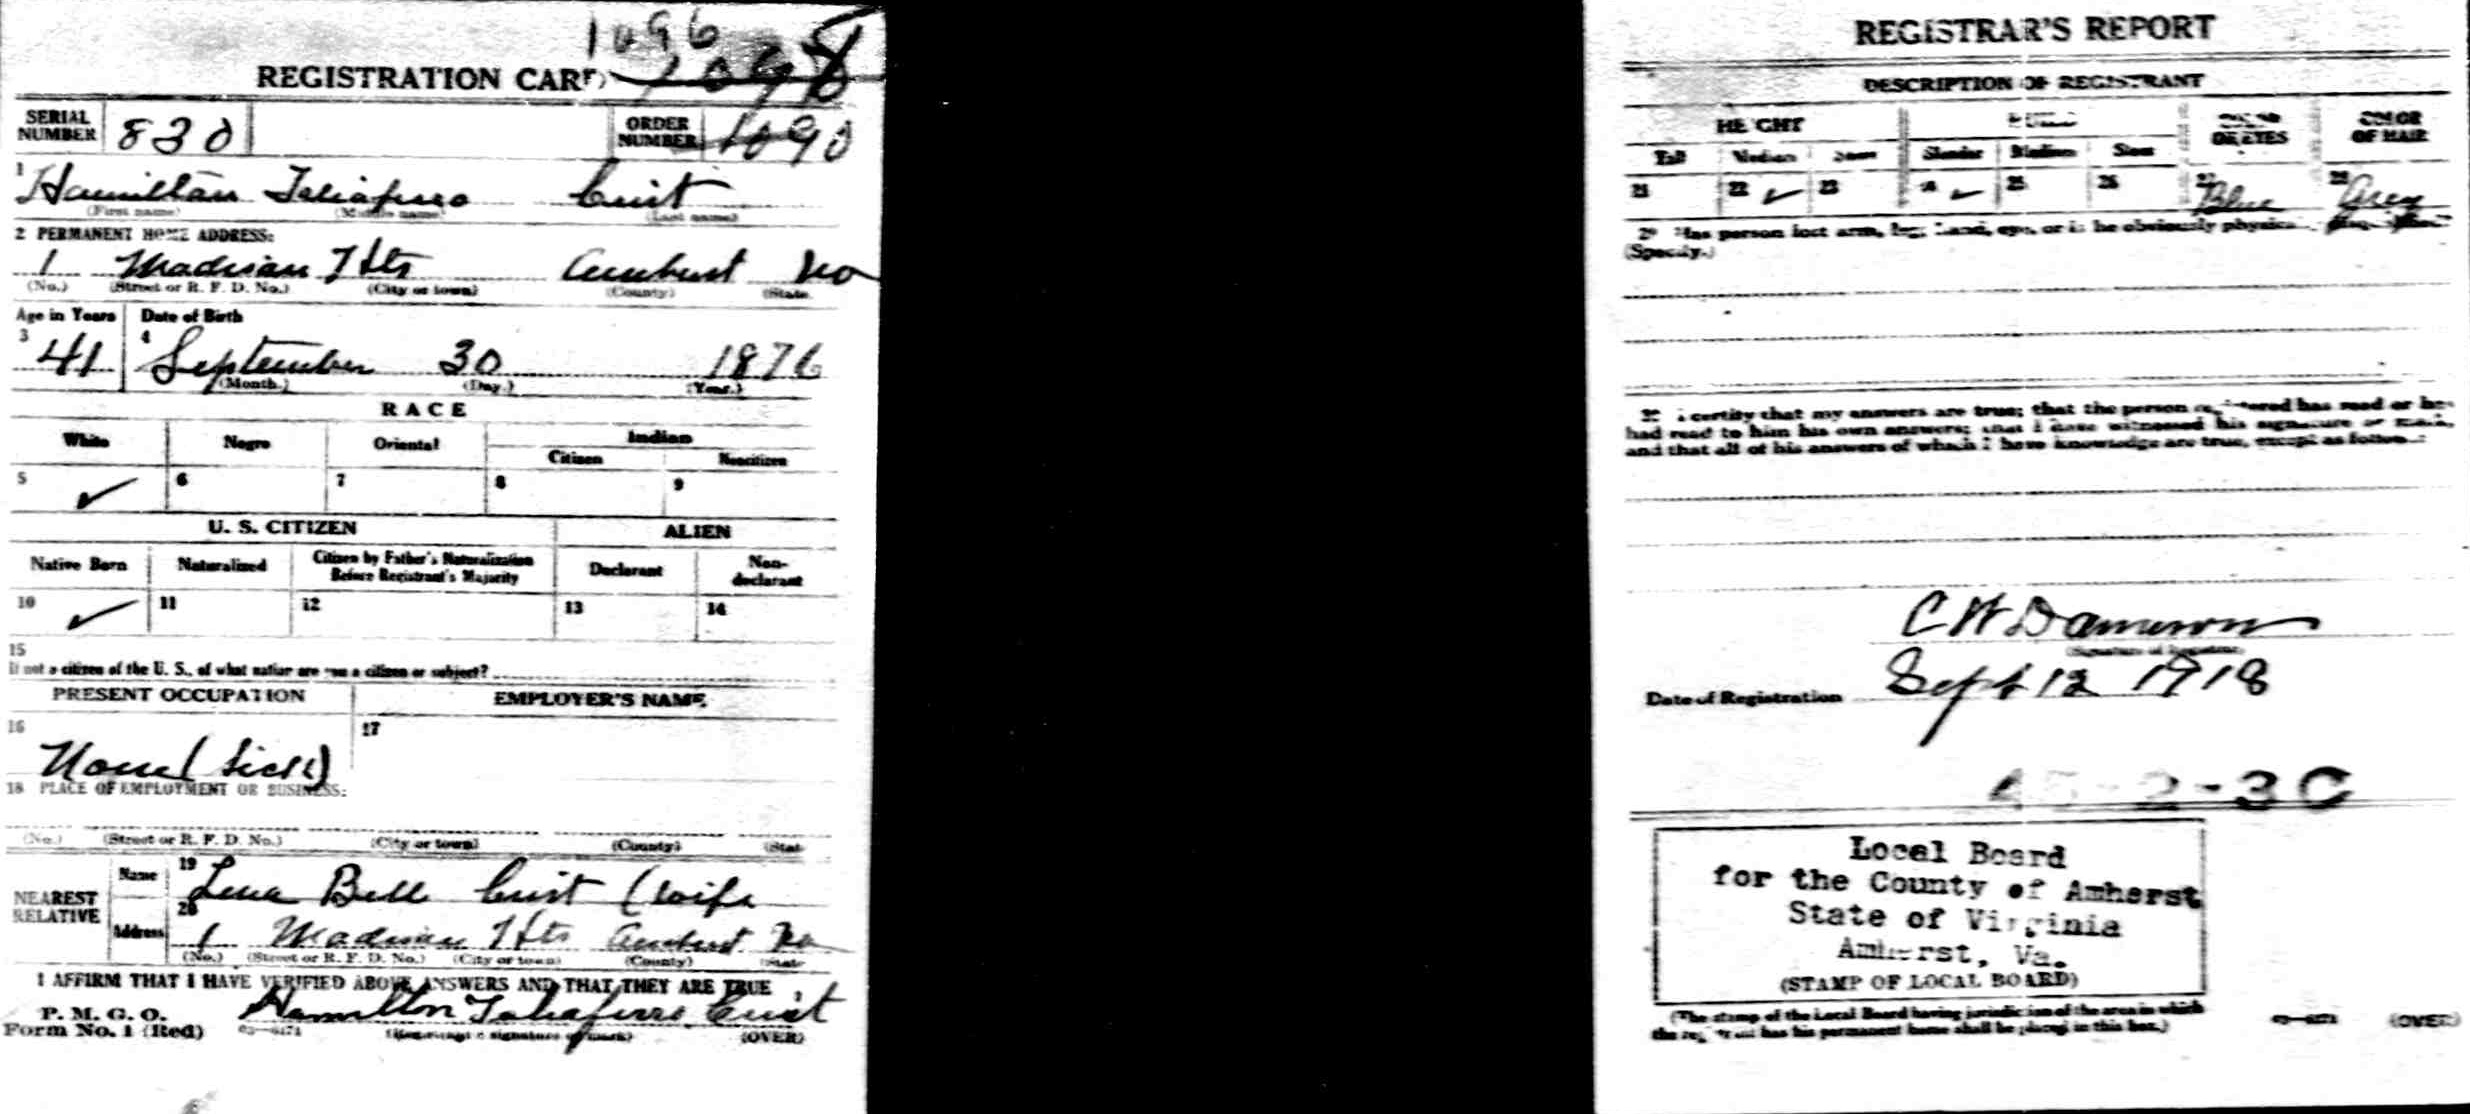 1096
REGISTRATION CARD 1098
SERIAL NUMBER 830 ORDER NUMBER 1090
1 Hamilton Taliaferro
(First name) (Middle name) (Last name)
2 PERMANENT HOME ADDRESS:
1 Madison Hts Amherst Va
(No.) (Street or R. F. D. No.) (City or town) (County) (State
Age in Years Date of Birth
3 41 4 September 30 1876
(Month.) (Day.) (Year.)
RACE
White Negro Oriental Indian
Citizen Noncitizen
5 ✓ 6 7 8 9
U. S. CITIZEN ALIEN
Native Born Naturalized Citizen by Father's Naturalization Before Registrant's Majority Declarant Non-declarant
10 ✓ 11 12 13 14
15
If not a citizen of the U. S., of what nation are you a citizen or subject?
PRESENT OCCUPATION EMPLOYER'S NAME
16 None (Sick) 17
18 PLACE OF EMPLOYMENT OR BUSINESS:
(No.) (Street or R. F. D. No.) (City or town) (County) (State
NEAREST RELATIVE Name 19 Lena Bell (wife
Address 20 1 Madison Hts Amherst Va
(No.) (Street or R. F. D. No.) (City or town) (County) State
I AFFIRM THAT I HAVE VERIFIED ABOVE ANSWERS AND THAT THEY ARE TRUE
P. M. G. O.
Form No. 1 (Red) Hamilton Taliaferro
(Registrant's signature or mark) (OVER)
REGISTRAR'S REPORT
DESCRIPTION OF REGISTRANT
HEIGHT BUILD COLOR OF EYES COLOR OF HAIR
Tall Medium Short Slender Medium Stout
21 22 ✓ 23 24 ✓ 25 26 27 Blue 28 Grey
29 Has person lost arm, leg, hand, eye, or is he obviously physically
(Specify.)
30 I certify that my answers are true; that the person registered has read or has
had read to him his own answers; that I have witnessed his signature or mark,
and that all of his answers of which I have knowledge are true, except as follows:
C W Dameron
(Signature of Registrar)
Date of Registration Sept 12 1918
45-2-3 C
Local Board
for the County of Amherst
State of Virginia
Amherst, Va.
(STAMP OF LOCAL BOARD)
(The stamp of the Local Board having jurisdiction of the area in which
the registrant has his permanent home shall be placed in this box.)
(OVER)